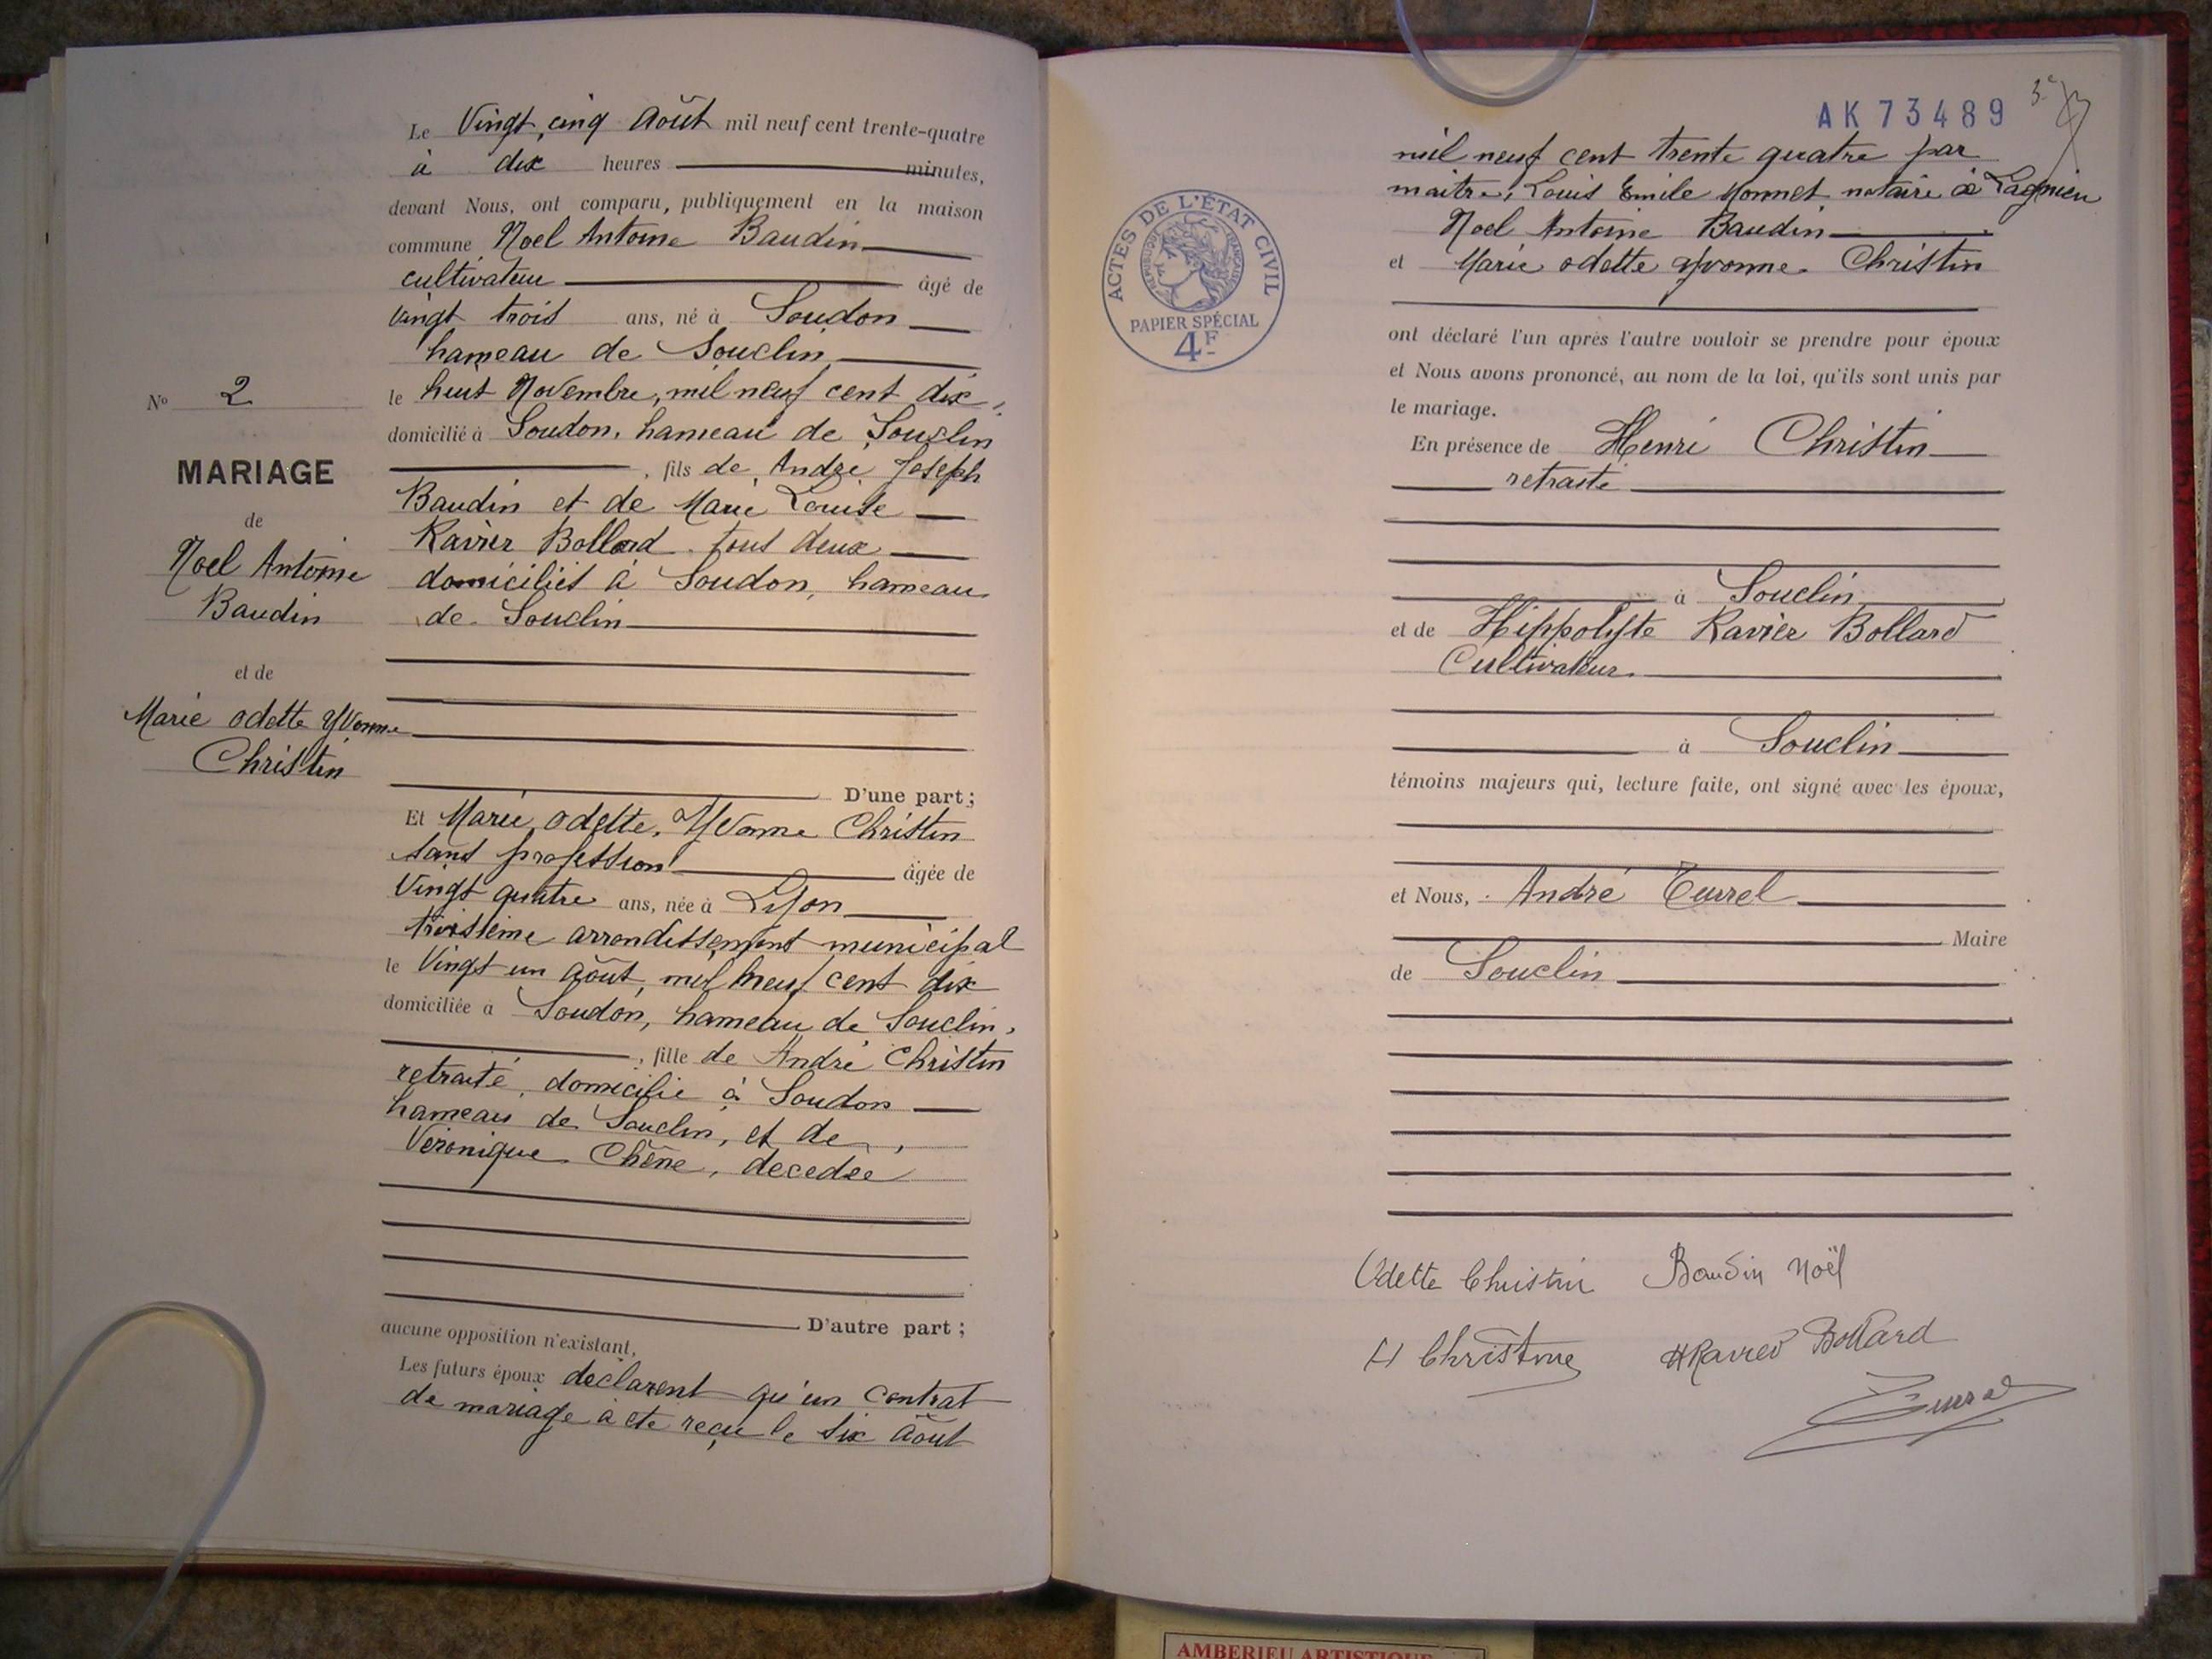 Le Vingt cinq Août mil neuf cent trente-quatre
à dix heures minutes,
devant Nous, ont comparu, publiquement en la maison
commune Noel Antoine Baudin
cultivateur âgé de
vingt trois ans, né à Soudon
hameau de Souclin
le huit Novembre, mil neuf cent dix,
domicilié à Soudon, hameau de Souclin
, fils de André Joseph
Baudin et de Marie Louise
Ravier Bollard tous deux
domiciliés à Soudon, hameau
de Souclin
No 2
MARIAGE
de
Noel Antoine
Baudin
et de
Marie odette Yvonne
Christin
D'une part;
Et Marie, odette, Yvonne Christin
sans profession âgée de
Vingt quatre ans, née à Lyon
troisième arrondissement municipal
le Vingt un Août, mil neuf cent dix
domiciliée à Soudon, hameau de Souclin,
, fille de André Christin
retraité, domicilié à Soudon
hameau de Souclin, et de,
Véronique Chêne, décédée
D'autre part;
aucune opposition n'existant,
Les futurs époux déclarent qu'un contrat
de mariage à été reçu le six Août
AK 73489
mil neuf cent trente quatre par
maitre, Louis Emile Monnet notaire à Lagnieu
Noel Antoine Baudin
et Marie odette Yvonne Christin
ACTES DE L'ÉTAT CIVIL
RÉPUBLIQUE FRANÇAISE
PAPIER SPÉCIAL
4F
ont déclaré l'un après l'autre vouloir se prendre pour époux
et Nous avons prononcé, au nom de la loi, qu'ils sont unis par
le mariage.
En présence de Henri Christin
retraité
à Souclin
et de Hippolyte Ravier Bollard
Cultivateur
à Souclin
témoins majeurs qui, lecture faite, ont signé avec les époux,
et Nous, André Turrel
Maire
de Souclin
Odette Christin Baudin Noël
H Christin HRavier Bollard
Turrel
AMBERIEU ARTISTIQUE